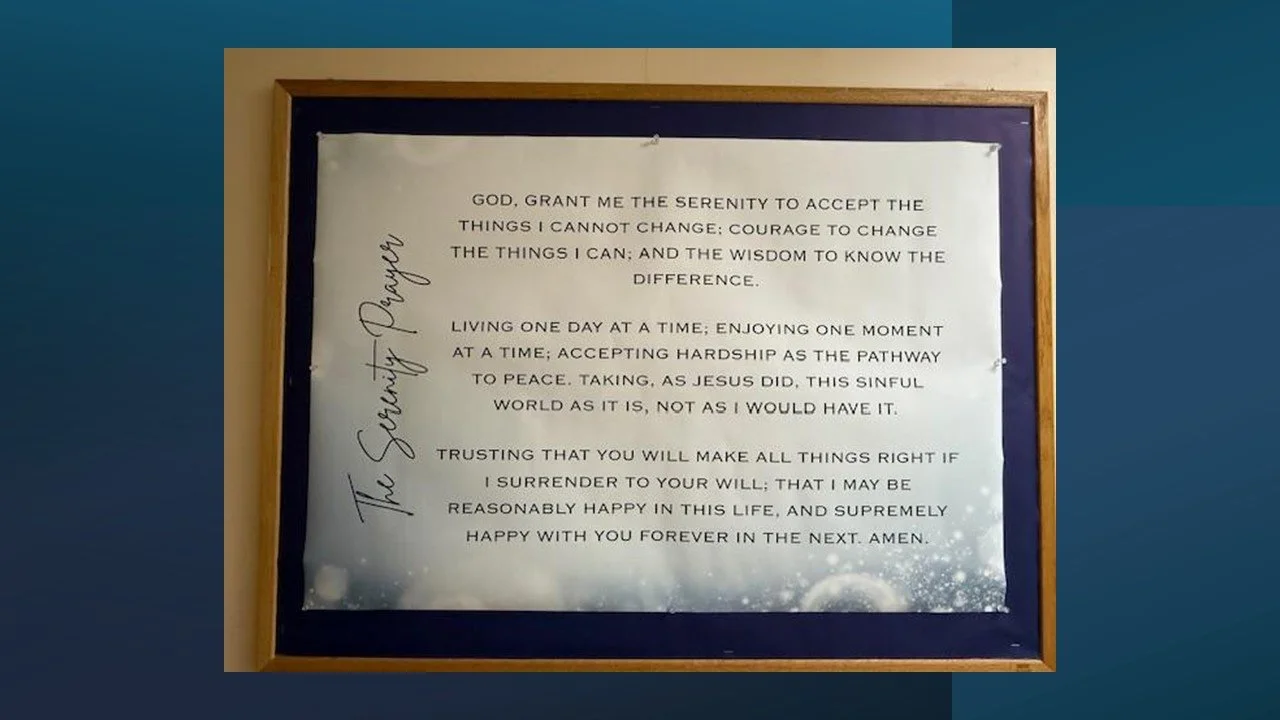 The Serenity Prayer
GOD, GRANT ME THE SERENITY TO ACCEPT THE
THINGS I CANNOT CHANGE; COURAGE TO CHANGE
THE THINGS I CAN; AND THE WISDOM TO KNOW THE
DIFFERENCE.
LIVING ONE DAY AT A TIME; ENJOYING ONE MOMENT
AT A TIME; ACCEPTING HARDSHIP AS THE PATHWAY
TO PEACE. TAKING, AS JESUS DID, THIS SINFUL
WORLD AS IT IS, NOT AS I WOULD HAVE IT.
TRUSTING THAT YOU WILL MAKE ALL THINGS RIGHT IF
I SURRENDER TO YOUR WILL; THAT I MAY BE
REASONABLY HAPPY IN THIS LIFE, AND SUPREMELY
HAPPY WITH YOU FOREVER IN THE NEXT. AMEN.